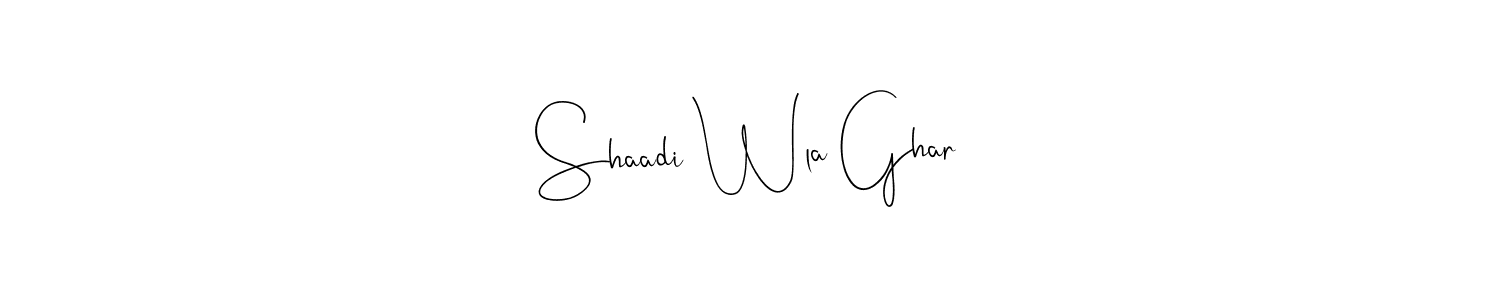 Shaadi Wla Ghar